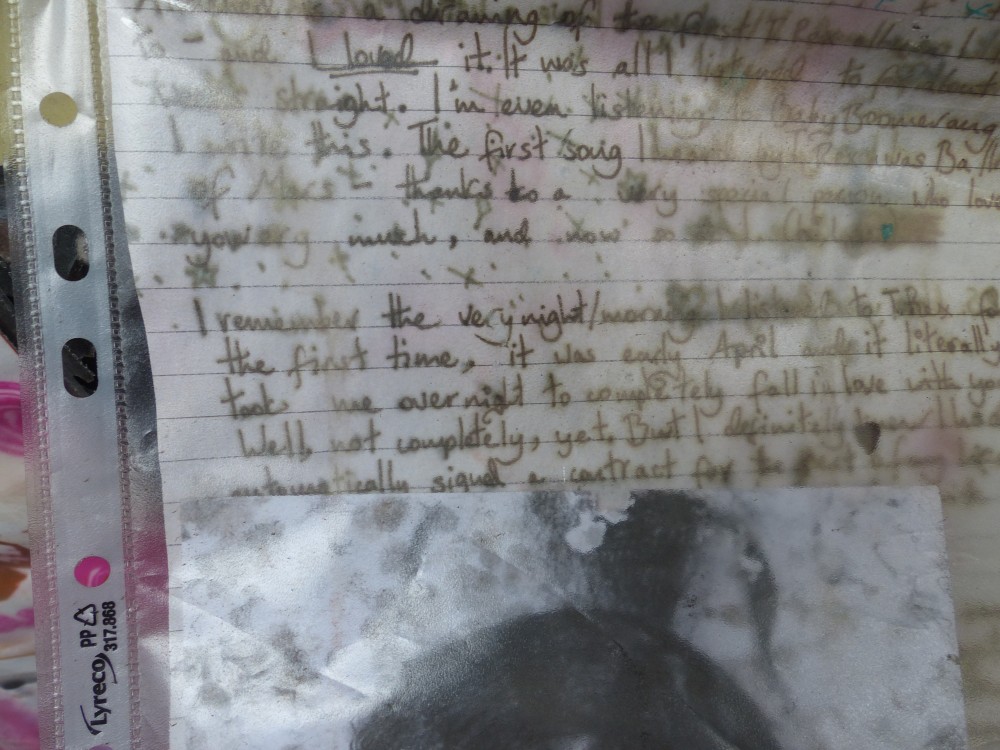 is a drawing of
to - and I loved it. It was all I listened to for about
straight. I'm even listening to Baby Boomerang
I write this. The first song I heard by T.Rex was Ba
of Mars - thanks to a very special person who lov
you very much, and now so
I remember the very night/morning I listened to T.Rex fo
the first time, it was early April and it literally
took me over night to completely fall in love with yo
Well, not completely, yet. But I definitely knew I ha
automatically signed a contract for the
Lyreco PP 317.868